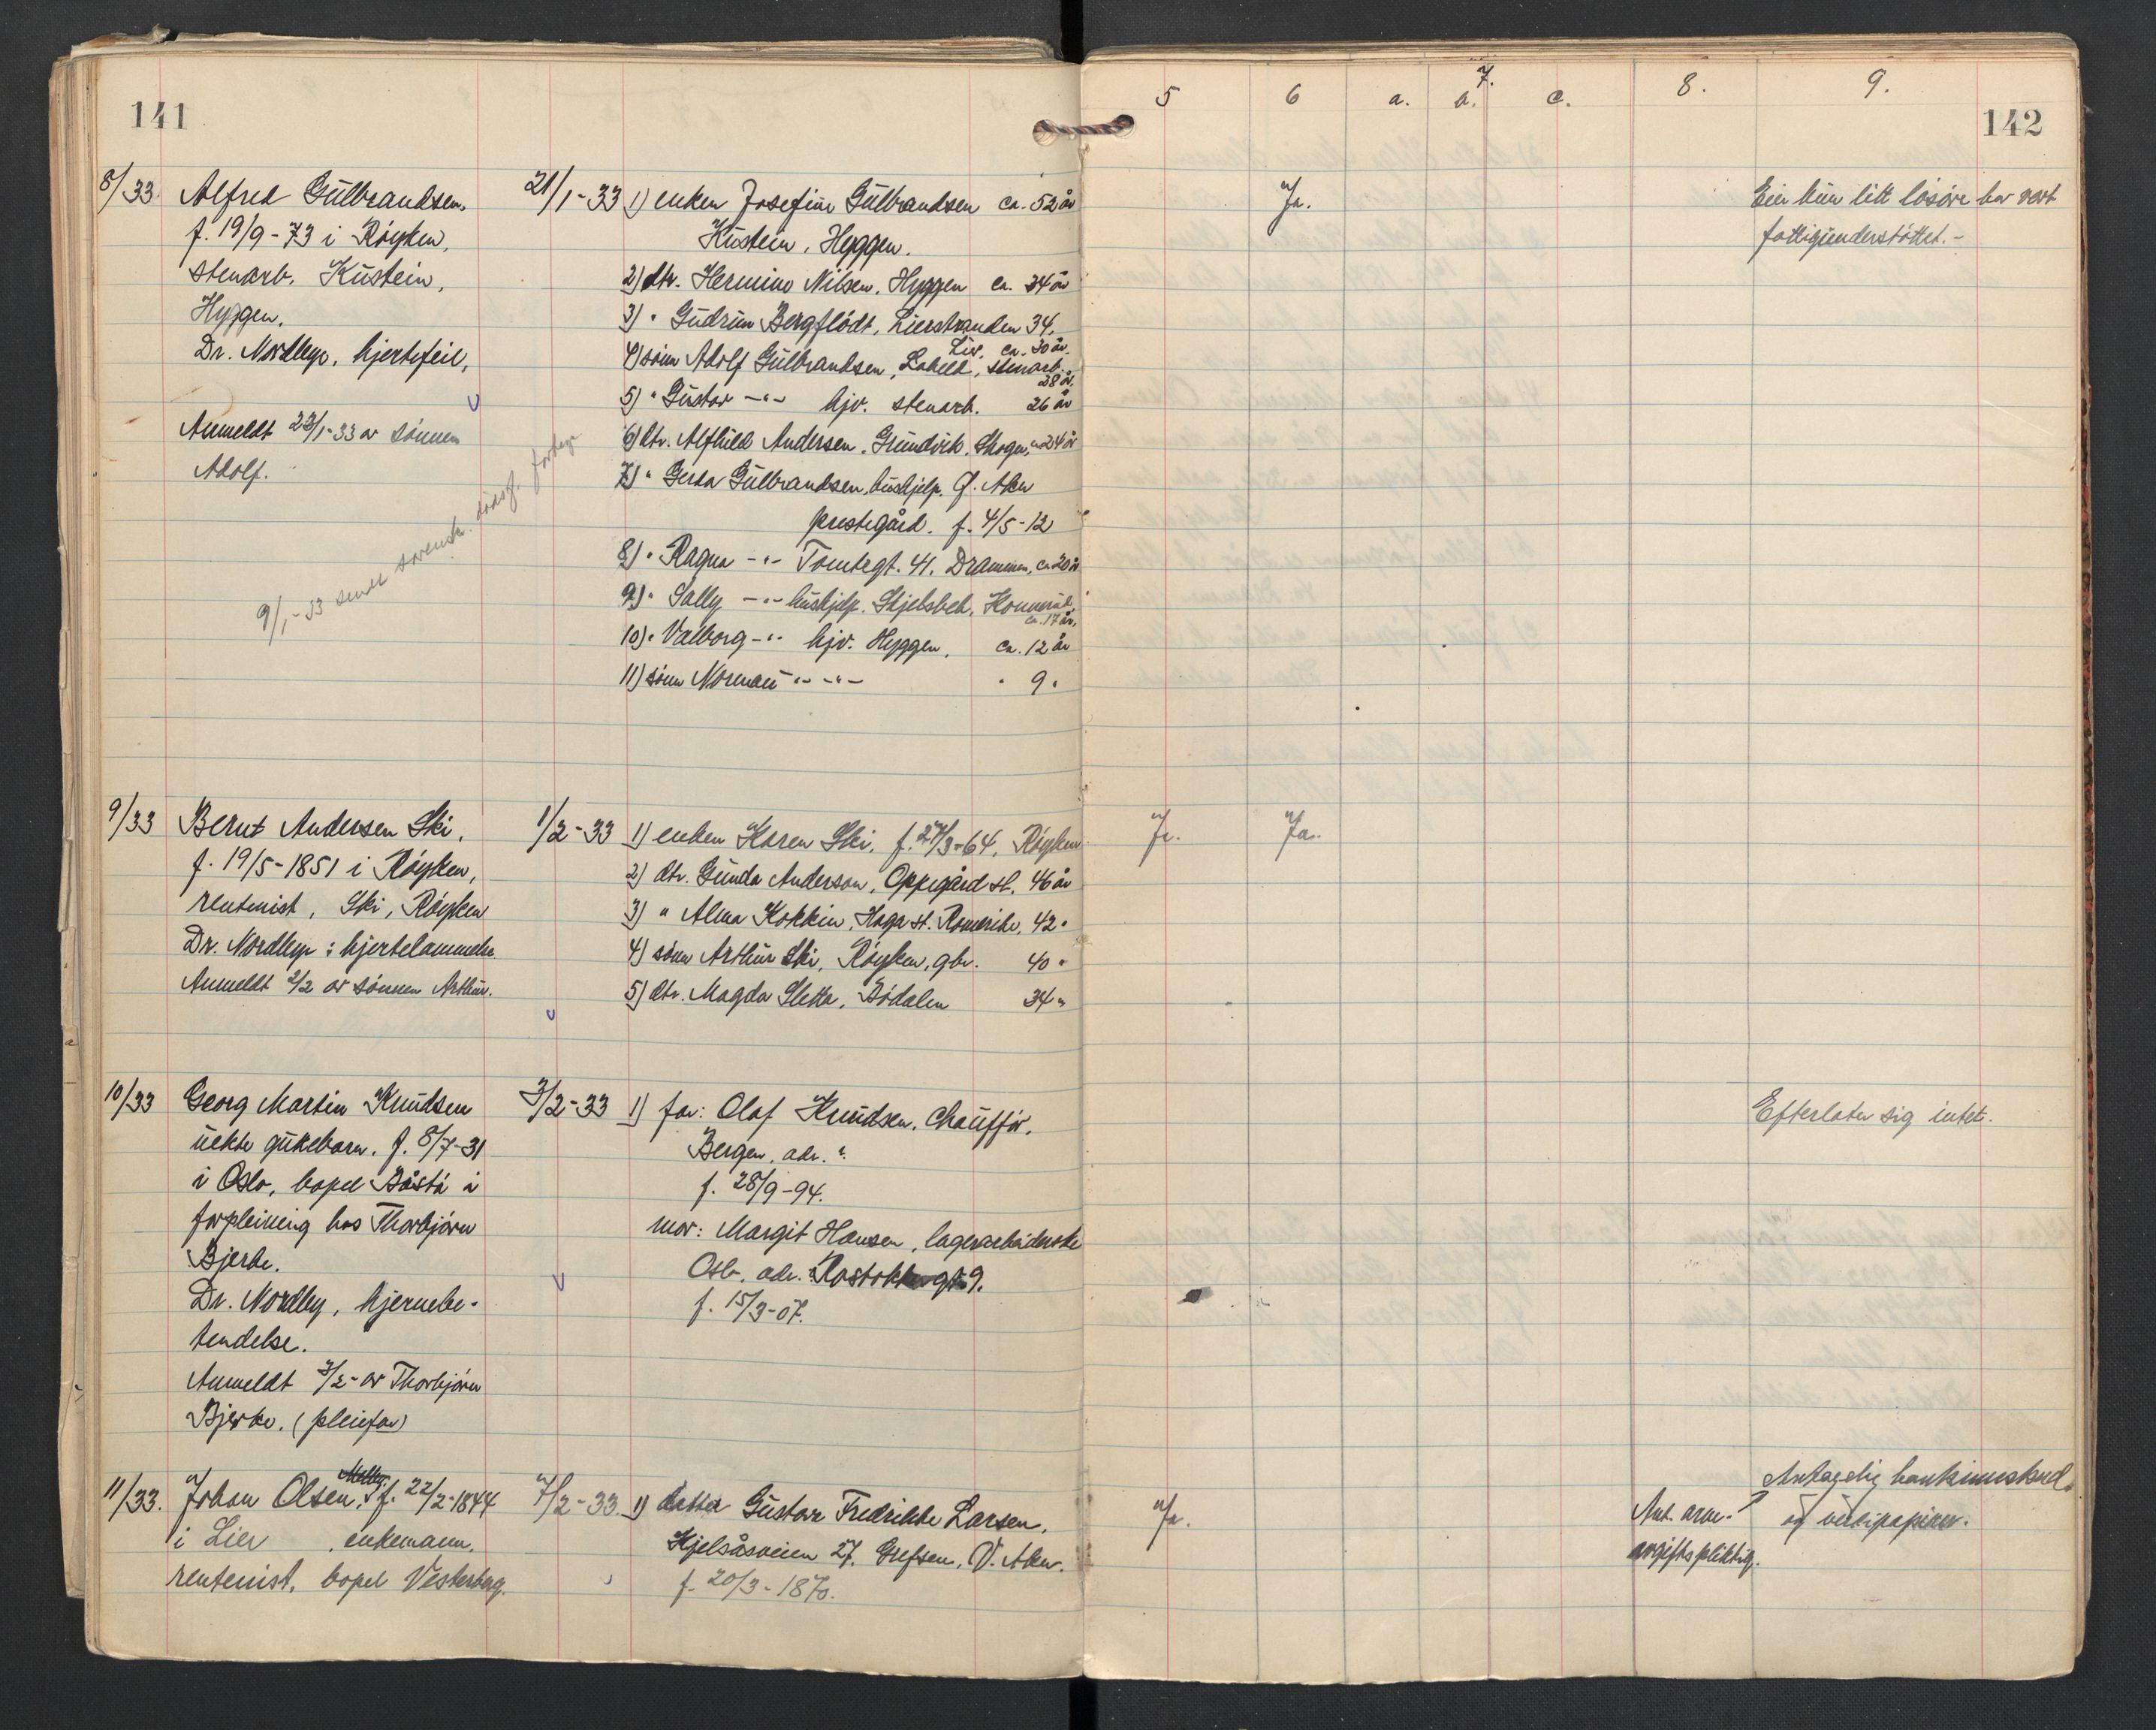 141
5
6
7.
a. b. c.
8.
9.
142
8/33. Alfred Gülbrandsen.
f. 19/9-73 i Röyken,
stenarb. Küstein,
Hyggen.
Dr. Nordbye. hjertefeil,
Anmeldt 23/1-33 av sönnen
Adolf.
9/1-33 sendt sorenskr. dödsf.
21/1-33 1) enken Josefine Gülbrandsen ca. 52 år
Küstein, Hyggen.
2) dtr. Hermine Nilsen, Hyggen ca. 34 år
3) " Güdrün Bergflödt, Lierstranden 34.
4) sönn Adolf Gülbrandsen, stenarb.
Lier. ca. 30 år.
28 år.
5) " Güstav -"- hjv. stenarb. 26 år
6) dtr. Alfhild Andersen, Gründvik, Skoger, ca 24 år
7) " Gerda Gülbrandsen, hüshjelp. Ø. Aker
prestegård. f. 4/5-12
8) " Ragna -"- Tomtegt. 41. Drammen, ca 20 år
9) " Sally -"- hüshjelp. Skjelsbek, Konnerud,
ca. 17 år.
10) " Valborg -"- hjv. Hyggen, ca. 12 år
11) sönn Norman -"- -"- " 9 "
Ja.
Eier kün litt lösöre har vært
fattigünderstöttet.-
9/33 Bernt Andersen Ski,
f. 19/5-1851 i Röyken,
rentenist, Ski, Röyken
Dr. Nordbye: hjertelammelse
Anmeldt 2/2 av sönnen Arthür.
1/2-33 1) enken Karen Ski, f. 27/3-64, Röyken
2) dtr. Günda Anderson, Oppegård st. 46 år
3) " Alma Kokkin, Haga st. Romerike, 42 "
4) sönn Arthür Ski, Röyken, gbr. 40 "
5) dtr. Magda Sletta, Bödalen 34 "
Ja. Ja.
10/33 Georg Martin Knüdsen
üekte guttebarn. f. 8/7-31
i Oslo, bopel Båstö i
forpleining hos Thorbjörn
Bjerke.
Dr. Nordbye, hjernebe-
tendelse.
Anmeldt 3/2- av Thorbjörn
Bjerke. (pleiefar)
3/2-33 1) far: Olaf Knüdsen, Chaüfför,
Bergen, adr. ?
f. 28/9-94.
mor: Margit Hansen, lagerarbeiderske
Oslo, adr. Rostokkergt. 9.
f. 15/3-07.
Efterlater sig intet.
11/33. Johan Olsen, f. 22/2-1844
i Lier, enkemann,
rentenist, bopel Vesterberg.
7/2-33. 1) datter Güstava Fredrikke Larsen,
Kjelsåsveien 27. Grefsen, V. Aker.
f. 20/3-1870.
Ja.
Ant. arve-?
avgiftspliktig.
Antagelig bankinnskud
og verdipapirer.